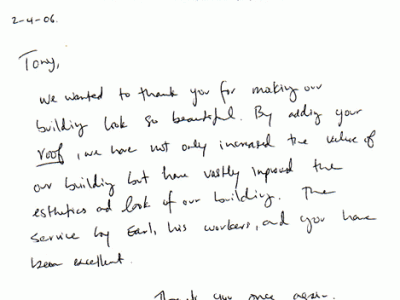 2-4-06.
Tony,
we wanted to thank you for making our
building look so beautiful. By adding your
roof, we have not only increased the value of
our building but have vastly improved the
esthetics and look of our building. The
service by Earl, his workers, and you have
been excellent.
Thank you once again.